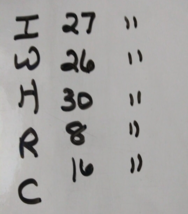 I 27 "
W 26 "
H 30 "
R 8 "
C 16 "